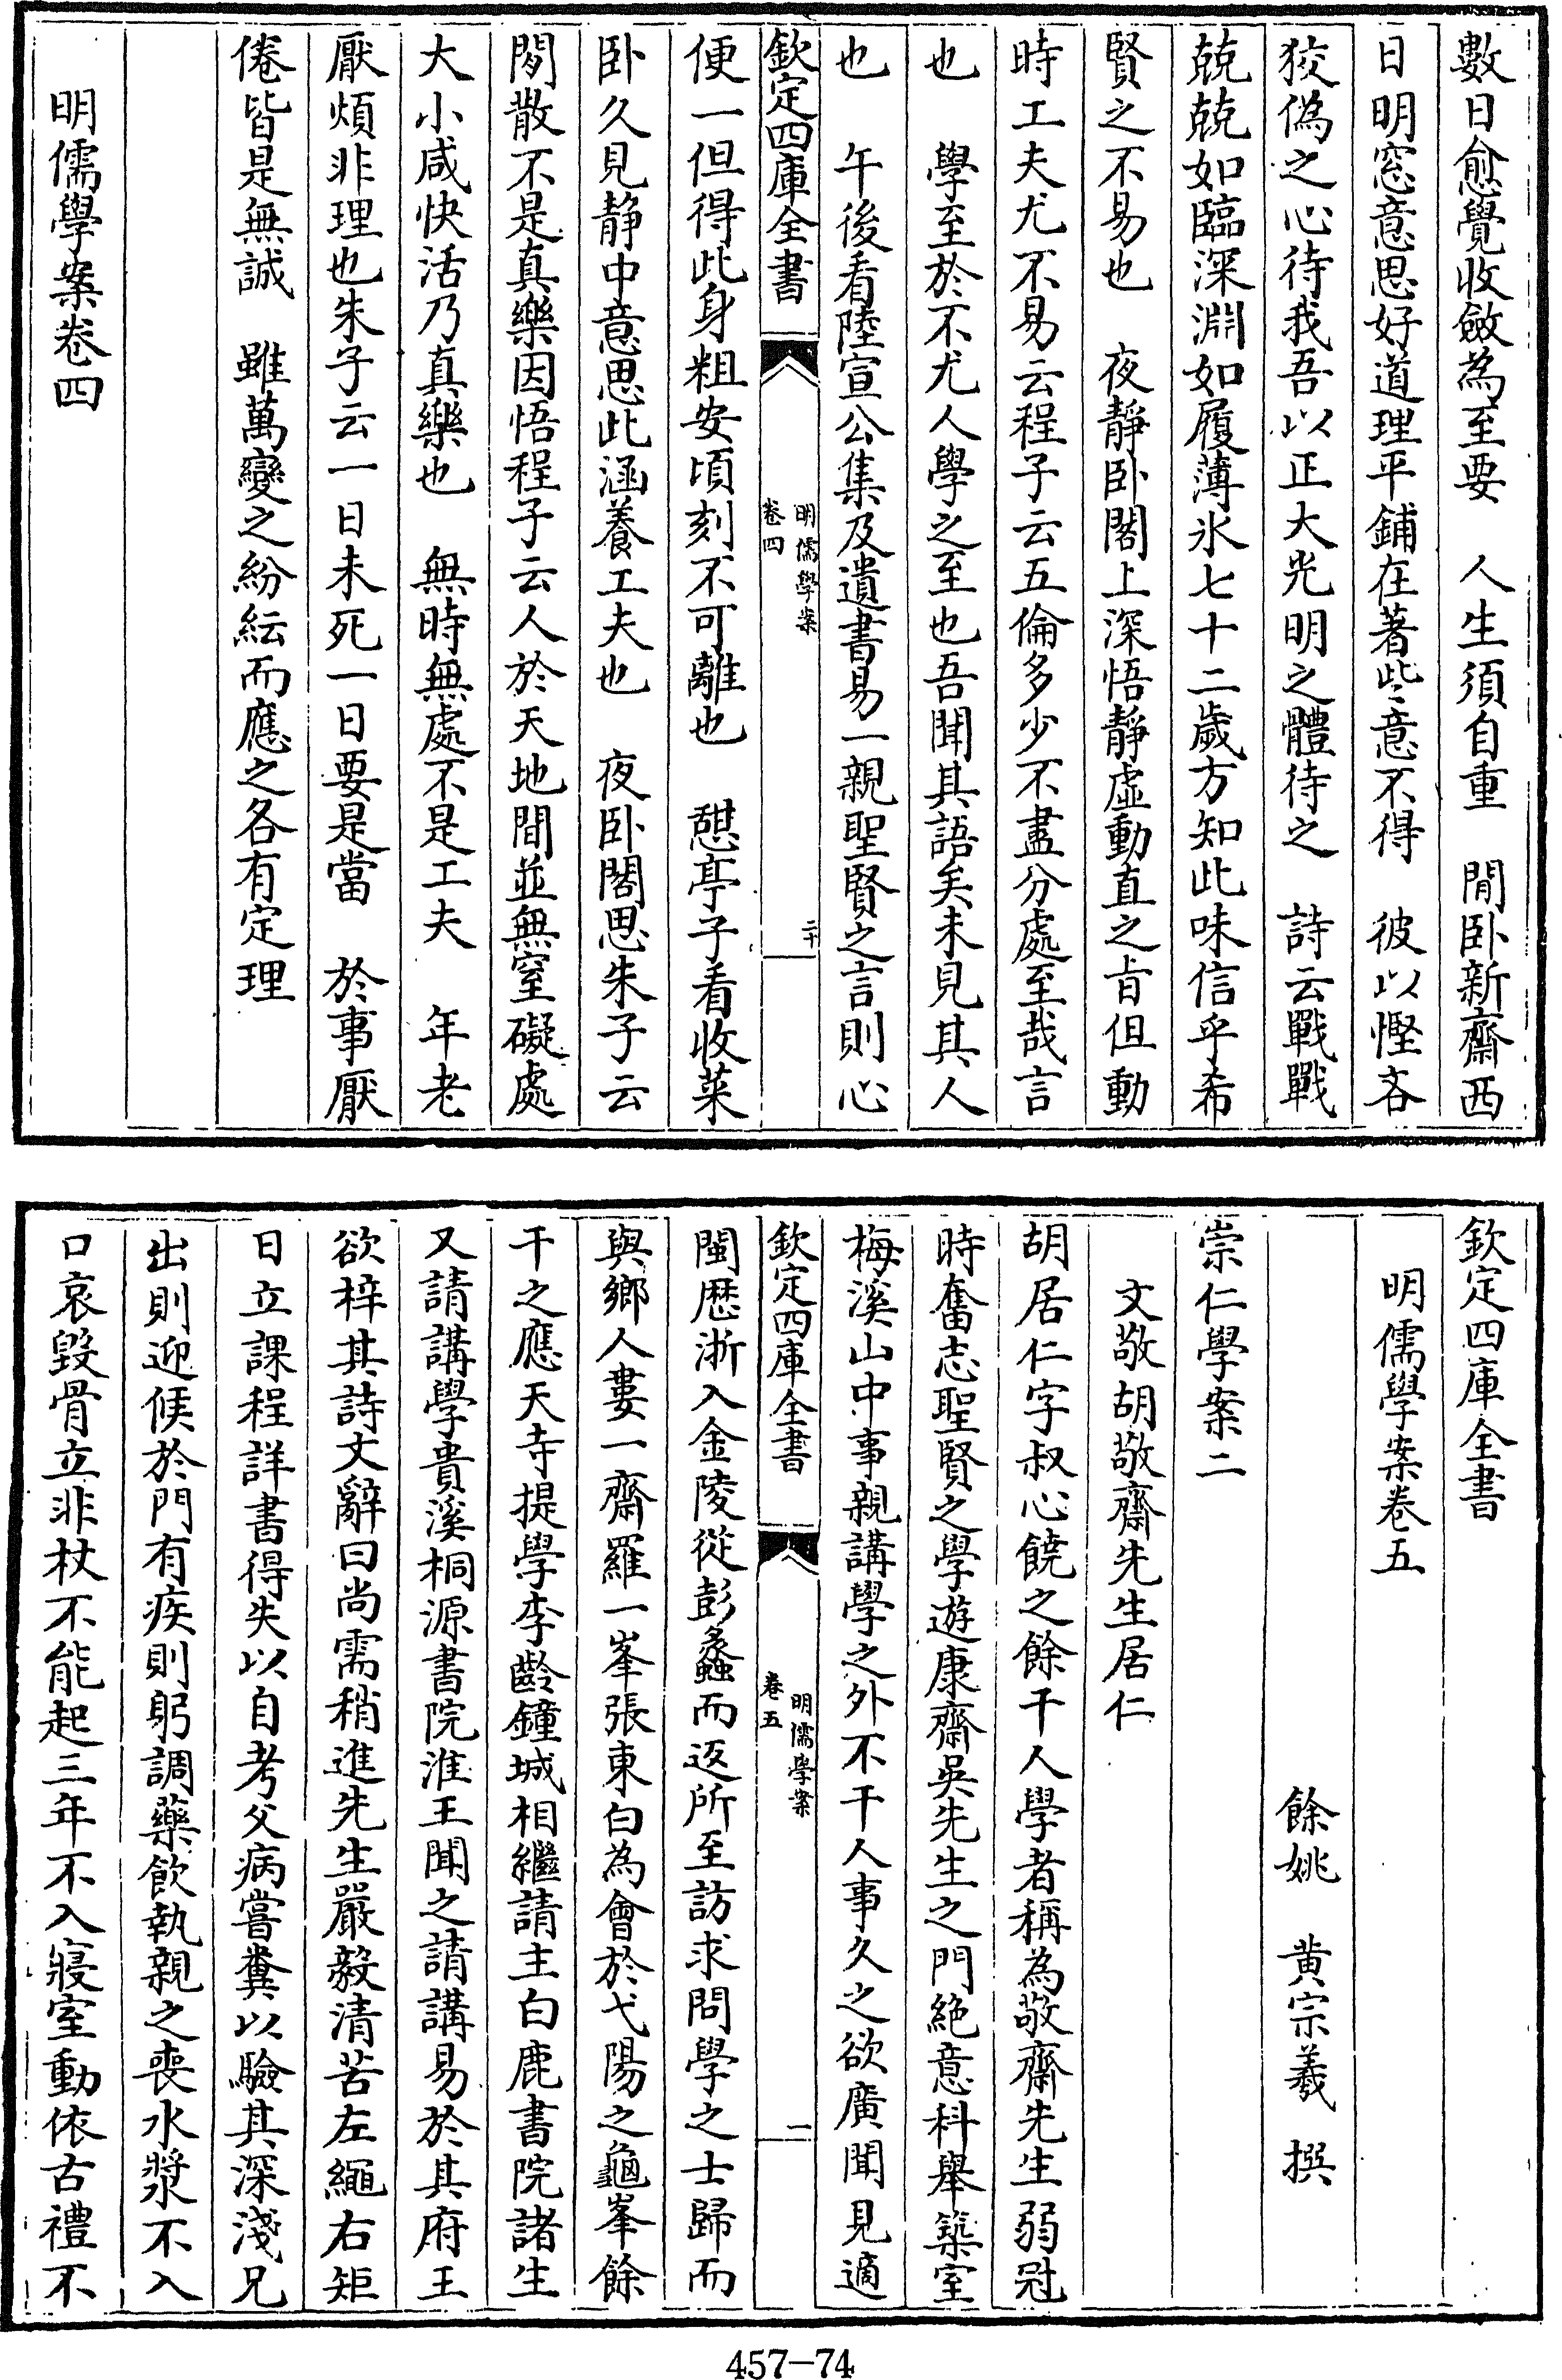 數日愈覺收斂為至要　人生須自重　閒卧新齋西
日明窓意思好道理平鋪在著些意不得　彼以慳吝
狡偽之心待我吾以正大光明之體待之　詩云戰戰
兢兢如臨深淵如履薄氷七十二歲方知此味信乎希
賢之不易也　夜靜卧閣上深悟靜虛動直之旨但動
時工夫尤不易云程子云五倫多少不盡分處至哉言
也　學至於不尤人學之至也吾聞其語矣未見其人
也　午後看陸宣公集及遺書易一親聖賢之言則心
欽定四庫全書
明儒學案
卷四
二十
便一但得此身粗安頃刻不可離也　憇亭子看收菜
卧久見静中意思此涵養工夫也　夜卧閣思朱子云
閒散不是真樂因悟程子云人於天地間並無窒礙處
大小咸快活乃真樂也　無時無處不是工夫　年老
厭煩非理也朱子云一日未死一日要是當　於事厭
倦皆是無誠　雖萬變之紛紜而應之各有定理
明儒學案卷四
欽定四庫全書
明儒學案卷五
餘姚　黄宗羲　撰
崇仁學案二
文敬胡敬齋先生居仁
胡居仁字叔心饒之餘干人學者稱為敬齋先生弱冠
時奮志聖賢之學遊康齋吳先生之門絶意科舉築室
梅溪山中事親講學之外不干人事久之欲廣聞見適
欽定四庫全書
明儒學案
卷五
一
閩歷浙入金陵從彭蠡而返所至訪求問學之士歸而
與鄉人婁一齋羅一峯張東白為會於弋陽之龜峯餘
干之應天寺提學李齡鐘城相繼請主白鹿書院諸生
又請講學貴溪桐源書院淮王聞之請講易於其府王
欲梓其詩文辭曰尚需稍進先生嚴毅清苦左繩右矩
日立課程詳書得失以自考父病嘗糞以驗其深淺兄
出則迎候於門有疾則躬調藥飲執親之喪水漿不入
口哀毀骨立非杖不能起三年不入寢室動依古禮不
457-74